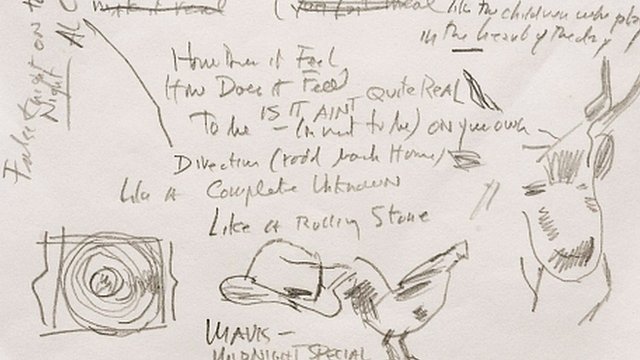 like the children who
in the beauty of the day
Fateful night on
Night AL
How Does it Feel
How Does it Feel
IS IT AINT QUITE REAL
To be - (or not to be) ON your own
Direction (road back Home)
Like A Complete Unknown
Like A Rolling Stone
MAVIS -
MIDNIGHT SPECIAL